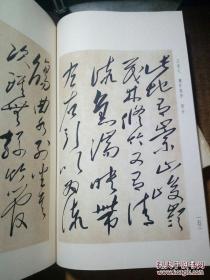 此地有崇山峻領
茂林修竹又有清
流激湍映帶
左右引以為流
觴曲水列坐其
次雖無絲竹管